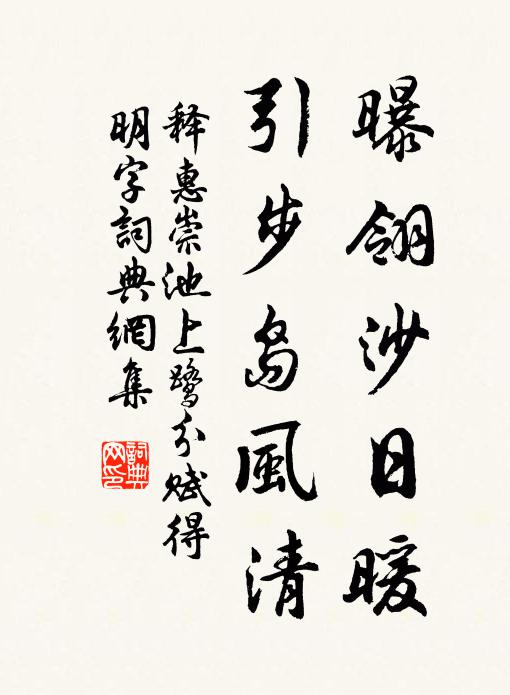 曝翎沙日暖
引步島風清
释惠崇池上鹭分赋得
明字詞典網集
詞典
网印